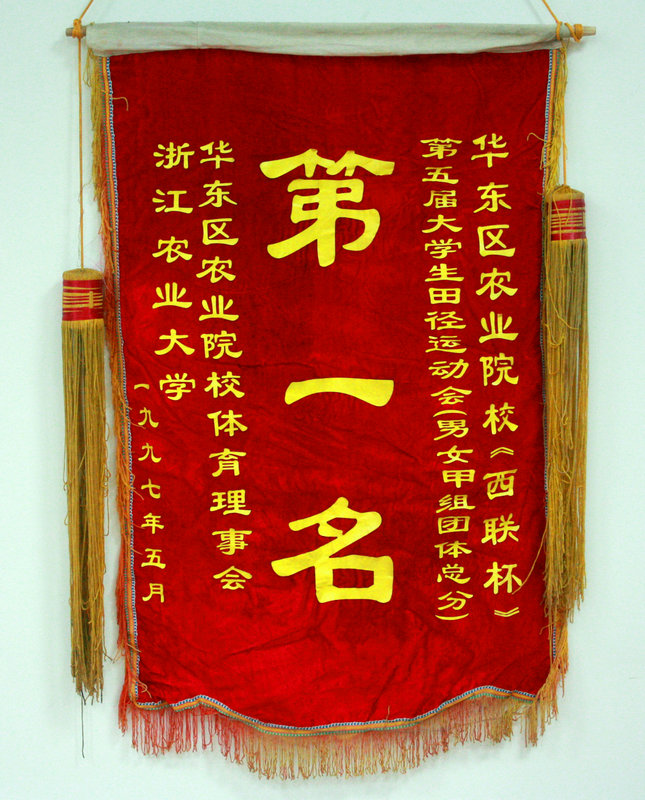 华东区农业院校《西联杯》
第五届大学生田径运动会(男女甲组团体总分)
第一名
华东区农业院校体育理事会
浙江农业大学
一九九七年五月